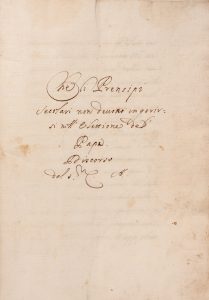 Che li Prencipi
Secolari non devono inserir-
si nell' Elettione del
Papa
Discorso
del S.r